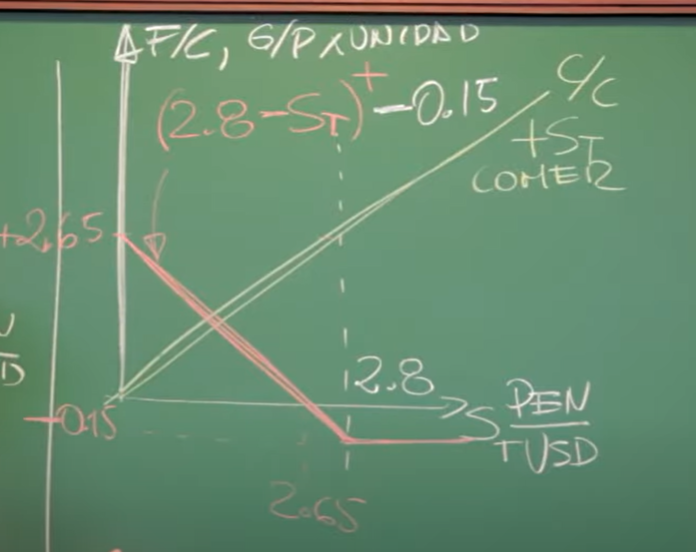 F/C, G/P X UNIDAD
(2.8-S_T)^+ -0.15
C/C
+S_T
COMER
+2.65
D
2.8
-0.15
S_T PEN/1USD
2.65